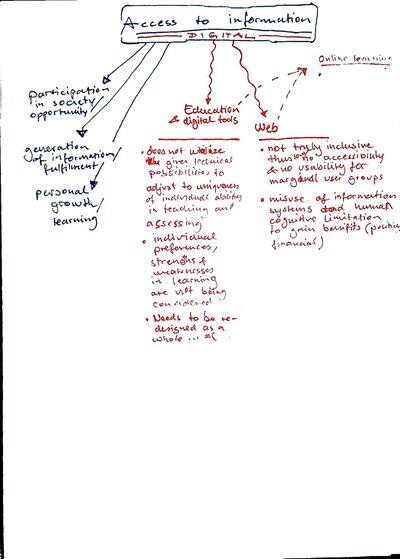 Access to information
DIGITAL
participation
in society
opportunity
generation
of information/
fulfilment
personal
growth/
learning
Education
& digital tools
• does not utilize
the given technical
possibilities to
adjust to uniqueness
of individual abilities
in teaching and
assessing
• individual
preferences,
strengths &
weaknesses
in learning
are not being
considered
• Needs to be re-
designed as a
whole ... =(
Web
• not truly inclusive
thus no accessibility
& no usability for
marginal user groups
• misuse of information
systems and human
cognitive limitation
to gain benefits (political,
financial)
Online learning